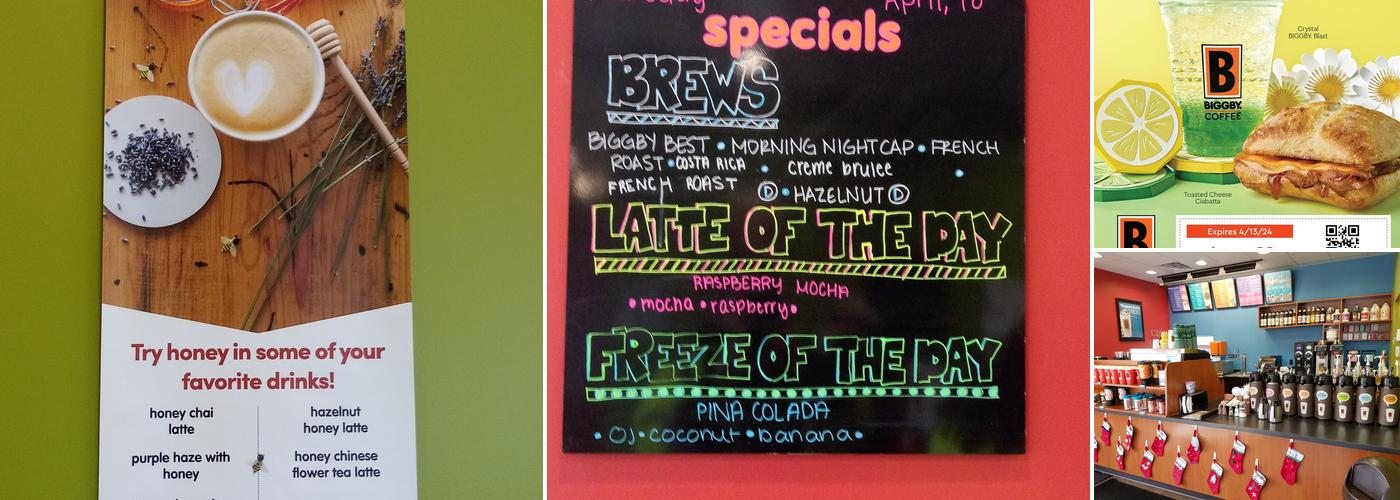 Try honey in some of your
favorite drinks!
honey chai
latte
hazelnut
honey latte
purple haze with
honey
honey chinese
flower tea latte
April, 10
specials
BREWS
BIGGBY BEST • MORNING NIGHTCAP • FRENCH
ROAST • COSTA RICA • creme brulee •
FRENCH ROAST Ⓓ • HAZELNUT Ⓓ
LATTE OF THE DAY
RASPBERRY MOCHA
• mocha • raspberry •
FREEZE OF THE DAY
PINA COLADA
• OJ • coconut • banana •
Crystal
BIGGBY Blast
B
BIGGBY
COFFEE
Toasted Cheese
Ciabatta
B
Expires 4/13/24